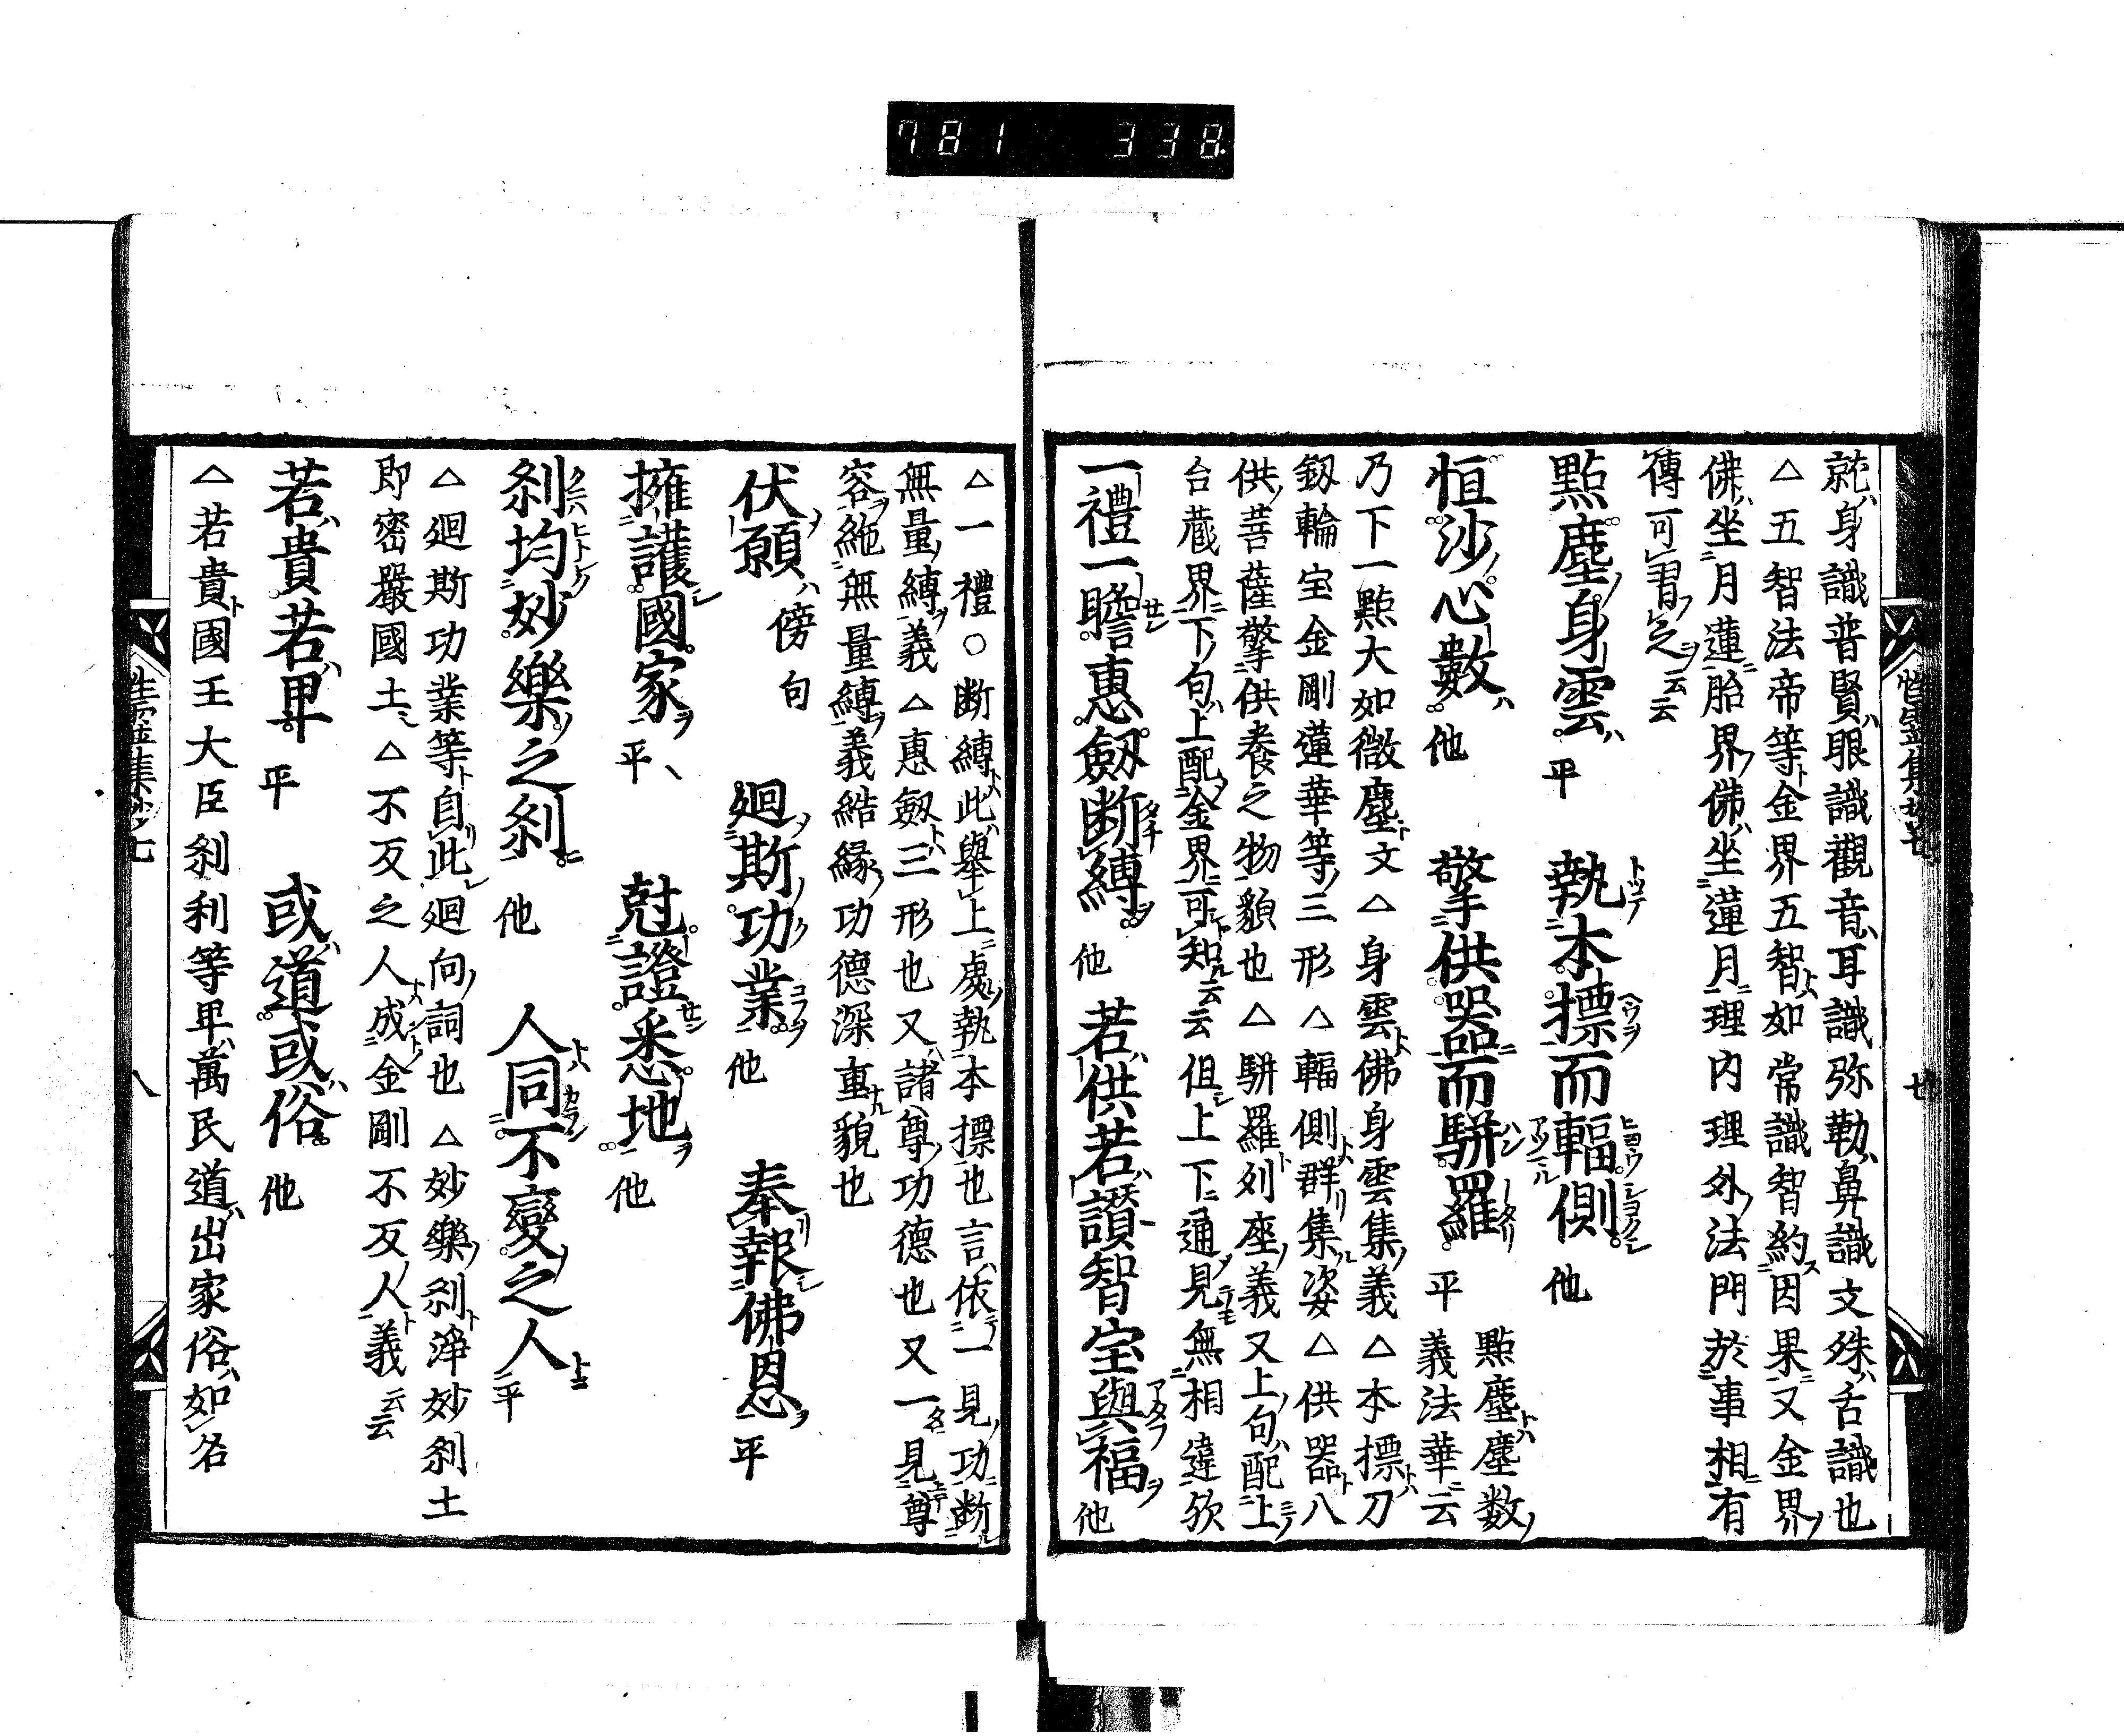 781 338
就身識普賢眼識觀音耳識弥勒鼻識文殊舌識也
△五智法帝等金界五智如常識智約因果又金界
佛坐月蓮胎界佛坐蓮月理内理外法門於事相有
傳可習之云云
點塵身雲 平 執本摽而輻側 他
恒沙心數 他 擎供器而駢羅 平 點塵塵数
義法華云
乃下一點大如微塵文△身雲佛身雲集義△本摽刀
釼輪宝金剛蓮華等三形△輻側群集姿△供器八
供菩薩擎供養之物貌也△駢羅列座義又上句配上
台蔵界下句上配金界可知云云但上下通見無相違欤
一禮一瞻惠劔断縛 他 若供若讃智宝與福 他
△一禮○断縛此舉上處執本摽也言依一見功断
無量縛義△惠劔三形也又諸尊功德也又一見尊
容絁無量縛義結縁功德深重貌也
伏願 傍句 廻斯功業 他 奉報佛恩 平
擁護國家 平 尅證悉地 他
刹均妙樂之刹 他 人同不變之人 平
△廻斯功業等自此廻向詞也△妙樂刹淨妙刹土
即密嚴國土△不変之人成金剛不変人義云云
若貴若卑 平 或道或俗 他
△若貴國王大臣刹利等卑萬民道出家俗如名
性霊集鈔七 八